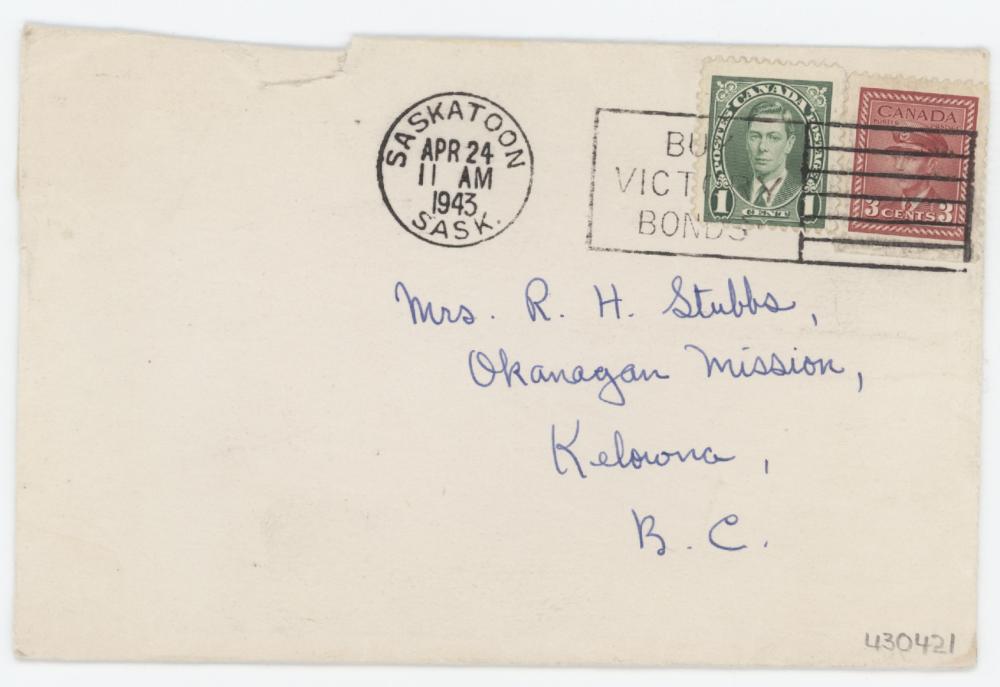 SASKATOON
APR 24
11 AM
1943
SASK.
BUY
VICT
BONDS
CANADA
POSTES POSTAGE
1 CENT 1
CANADA
3 CENTS 3
Mrs. R. H. Stubbs,
Okanagan Mission,
Kelowna,
B. C.
430421